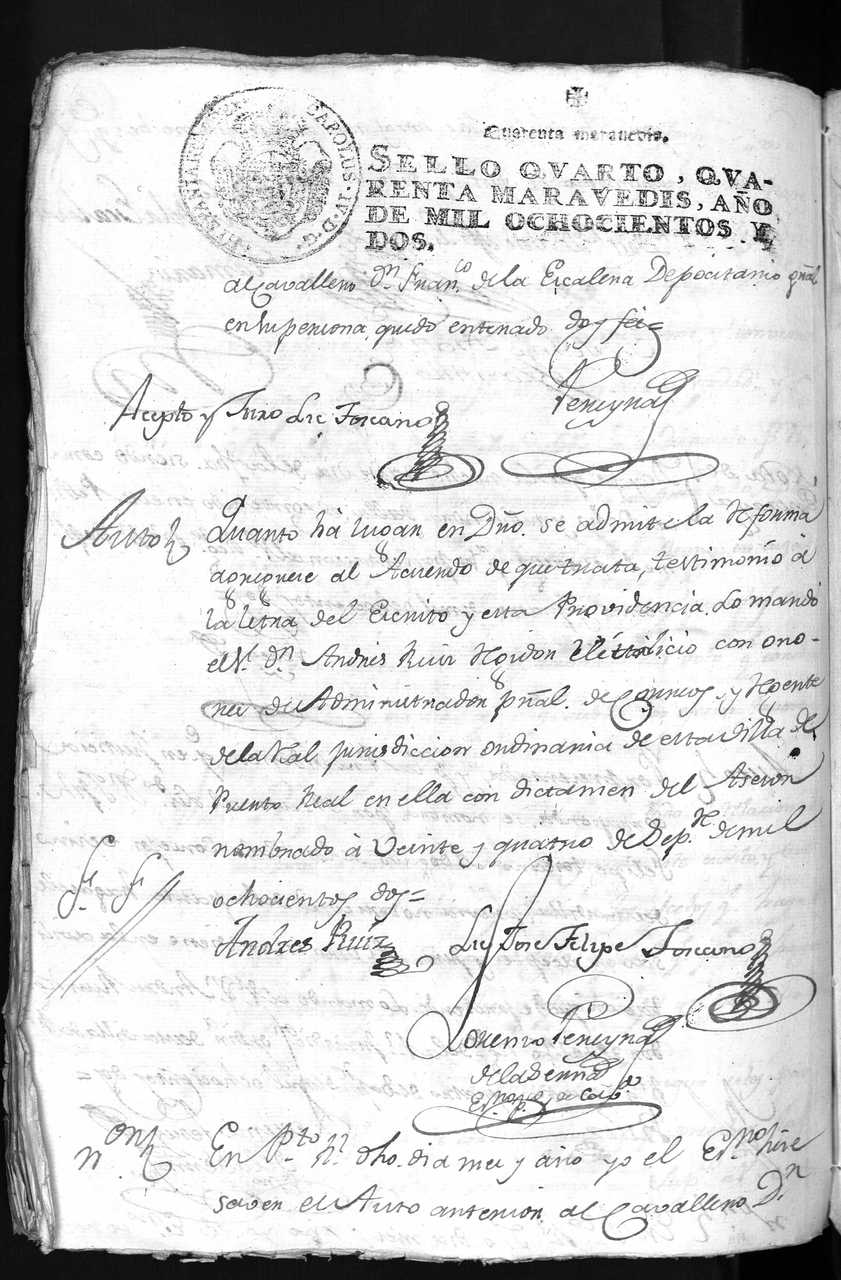 Quarenta maravedis.
CAROLUS·IV·D·G· HISPANIAR
SELLO QVARTO, QVA-
RENTA MARAVEDIS, AÑO
DE MIL OCHOCIENTOS Y
DOS.
al Cavallero Dn. Franco. de la Escalera Depocitario gñal
en su persona quedo enterado doy fee=
Pereyra
Acepto y Juro Lic Toscano
Auto
Quanto há lugar en Dño. se admite la Reforma
al Acuerdo de que trata, testimonio à
la letra del Escrito y esta Providencia. Lo mandó
el Sr. Dn Andres Ruiz con ono-
res de Administrador pñal. de Correos, y Rexente
de la Rl. jurisdiccion ordinaria de esta Villa de
Puerto Real en ella con dictamen del Asesor
nombrado à Veinte y quatro de Sep.re de mil
ochocientos dos=
Andres Ruiz
Lic Jose Felipe Toscano
Lorenzo Pereyra
de la Serna
Esno. pco. y de Cabo.
En Pto. Rl. dho. dia mes y año yo el Esno. hize
saver el Auto anterior al Cavallero Dn